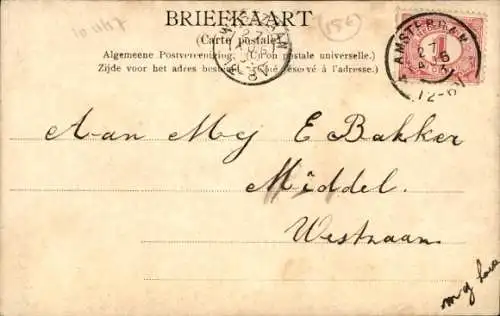 BRIEFKAART
(Carte postale)
Algemeene Postvereeniging. (Union postale universelle.)
Zijde voor het adres bestemd. (Côté réservé à l'adresse.)
AMSTERDAM
1
Aan Mej E Bakker
Middel.
Westzaan.